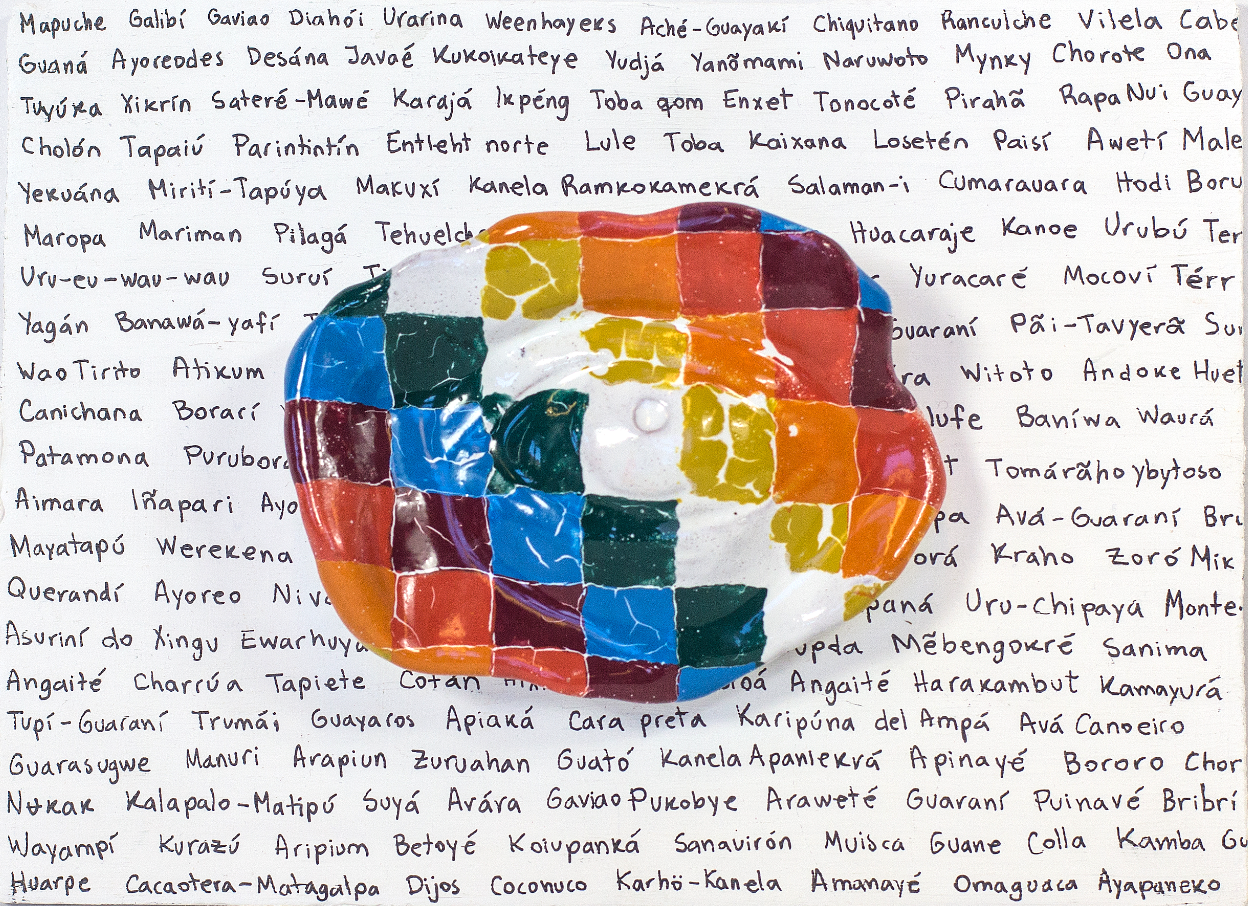 Mapuche Galibí Gaviao Diahói Urarina Weenhayeks Aché-Guayakí Chiquitano Ranculche Vilela Cabe
Guaná Ayoreodes Desána Javaé Kukoikateye Yudjá Yanõmami Naruwoto Mynky Chorote Ona
Tuyúka Xikrín Sateré-Mawé Karajá Ikpéng Toba qom Enxet Tonocoté Pirahã Rapa Nui Guay
Cholón Tapaiú Parintintín Entleht norte Lule Toba Kaixana Losetén Paisí Awetí Male
Yekuána Mirití-Tapúya Makuxí Kanela Ramkokamekrá Salaman-i Cumarauara Hodi Boru
Maropa Mariman Pilagá Tehuelche Huacaraje Kanoe Urubú Ter
Uru-eu-wau-wau Suruí Yuracaré Mocoví Térr
Yagán Banawá-yafí Guaraní Pãi-Tavyerã Su
Wao Tirito Atikum ra Witoto Andoke Huet
Canichana Borarí lufe Baníwa Waurá
Patamona Purubora Tomárãho ybytoso
Aimara Iñapari Ayo pa Avá-Guaraní Bri
Mayatapú Werekena orá Kraho Zoró Mik
Querandí Ayoreo Niva paná Uru-Chipaya Monte
Asuriní do Xingu Ewarhuya upda Mẽbengokré Sanima
Angaité Charrúa Tapiete Cofán oá Angaité Harakambut Kamayurá
Tupí-Guaraní Trumái Guayaros Apiaká Cara preta Karipúna del Ampá Avá Canoeiro
Guarasugwe Manuri Arapiun Zuruahan Guató Kanela Apaniekrá Apinayé Bororo Chor
Nukak Kalapalo-Matipú Suyá Arára Gaviao Pukobye Araweté Guaraní Puinavé Bribrí
Wayampí Kurazú Aripium Betoyé Koiupanká Sanavirón Muisca Guane Colla Kamba Gu
Huarpe Cacaotera-Matagalpa Dijos Coconuco Karhö-Kanela Amanayé Omaguaca Ayapaneko